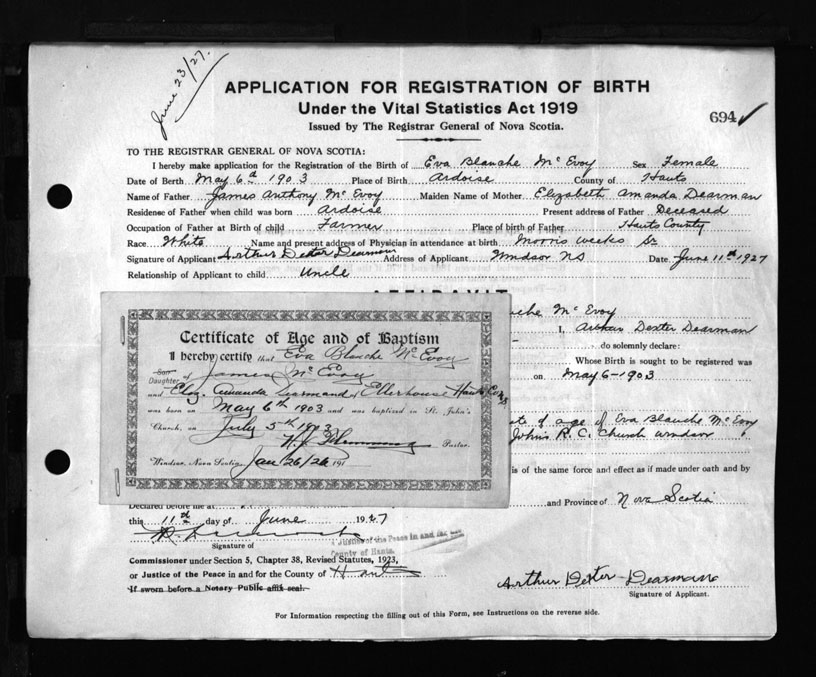 June 23/27.
APPLICATION FOR REGISTRATION OF BIRTH
Under the Vital Statistics Act 1919
694
Issued by The Registrar General of Nova Scotia.
TO THE REGISTRAR GENERAL OF NOVA SCOTIA:
I hereby make application for the Registration of the Birth of Eva Blanche McEvoy Sex Female
Date of Berth May 6th 1903 Place of Birth Ardoise County of Hants
Name of Father James Anthony McEvoy Maiden Name of Mother Elizabeth Amanda Dearman
Residense of Father when child was born Ardoise Present address of Father Deceased
Occupation of Father at Birth of child Farmer Place of birth of Father Hants County
Race White Name and present address of Physician in attendance at birth Morris Weeks Dr
Signature of Applicant Arthur Dexter Dearman Address of Applicant Windsor NS Date June 11th 1927
Relationship of Applicant to child Uncle
AFFIDAVIT
Blanche McEvoy
I, Arthur Dexter Dearman
do solemnly declare:
Whose Birth is sought to be registered was
on May 6-1903
of age of Eva Blanche McEvoy
Johns R.C. Church Windsor
is of the same force and effect as if made under oath and by
Certificate of Age and of Baptism
I hereby certify that Eva Blanche McEvoy
Son
Daughter of James McEvoy
and Eliz. Amanda Dearman of Ellershouse Hants Co.
was born on May 6th 1903 and was baptized in St. John's
Church, on July 5th 1903
Pastor.
Windsor, Nova Scotia, Jan 26/26 191
Declared before me at and Province of Nova Scotia
this 11th day of June 1927
Signature of
A Justice of the Peace in and for the
County of Hants.
Commissioner under Section 5, Chapter 38, Revised Statutes, 1923,
or Justice of the Peace in and for the County of Hants
If sworn before a Notary Public affix seal.
Arthur Dexter Dearman
Signature of Applicant.
For Information respecting the filling out of this Form, see Instructions on the reverse side.